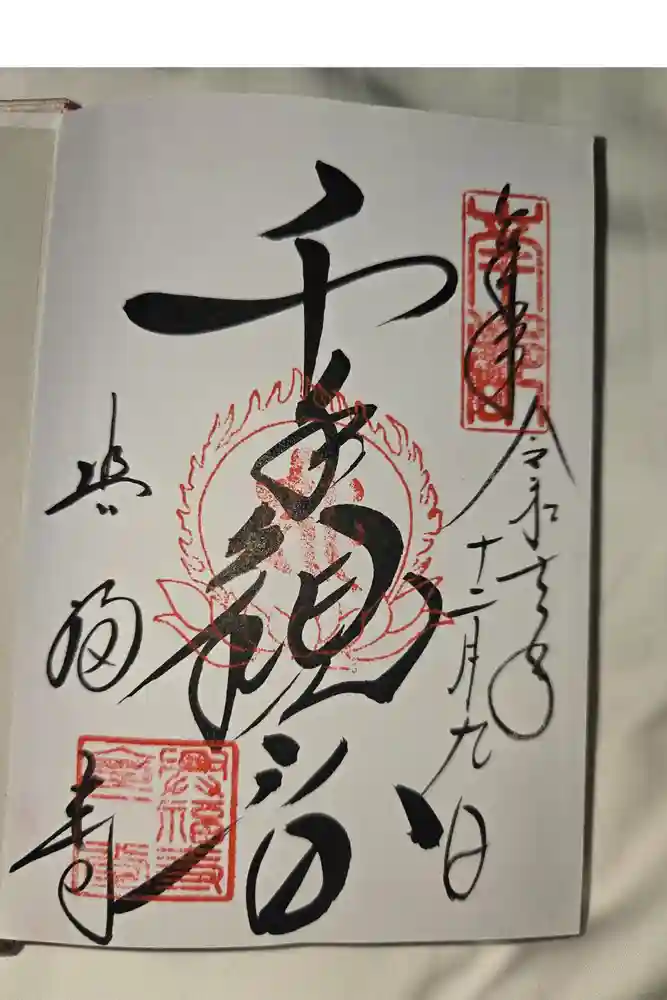 奉拝
令和七年
十二月九日
千手観音
興福寺